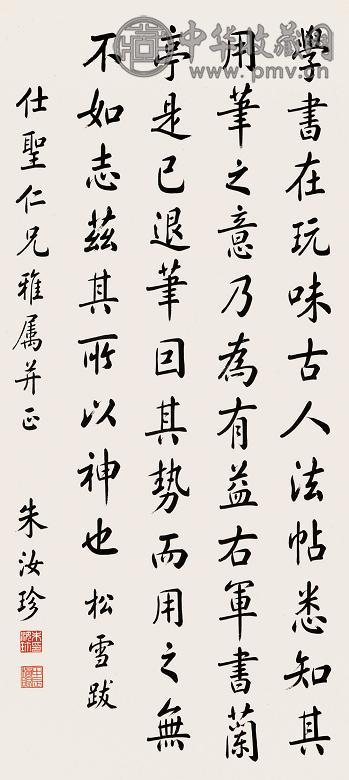 中华收藏网
www.pmv.cn
學書在玩味古人法帖悉知其
用筆之意乃為有益右軍書蘭
亭是已退筆因其勢而用之無
不如志茲其所以神也 松雪跋
仕聖仁兄雅属并正 朱汝珍